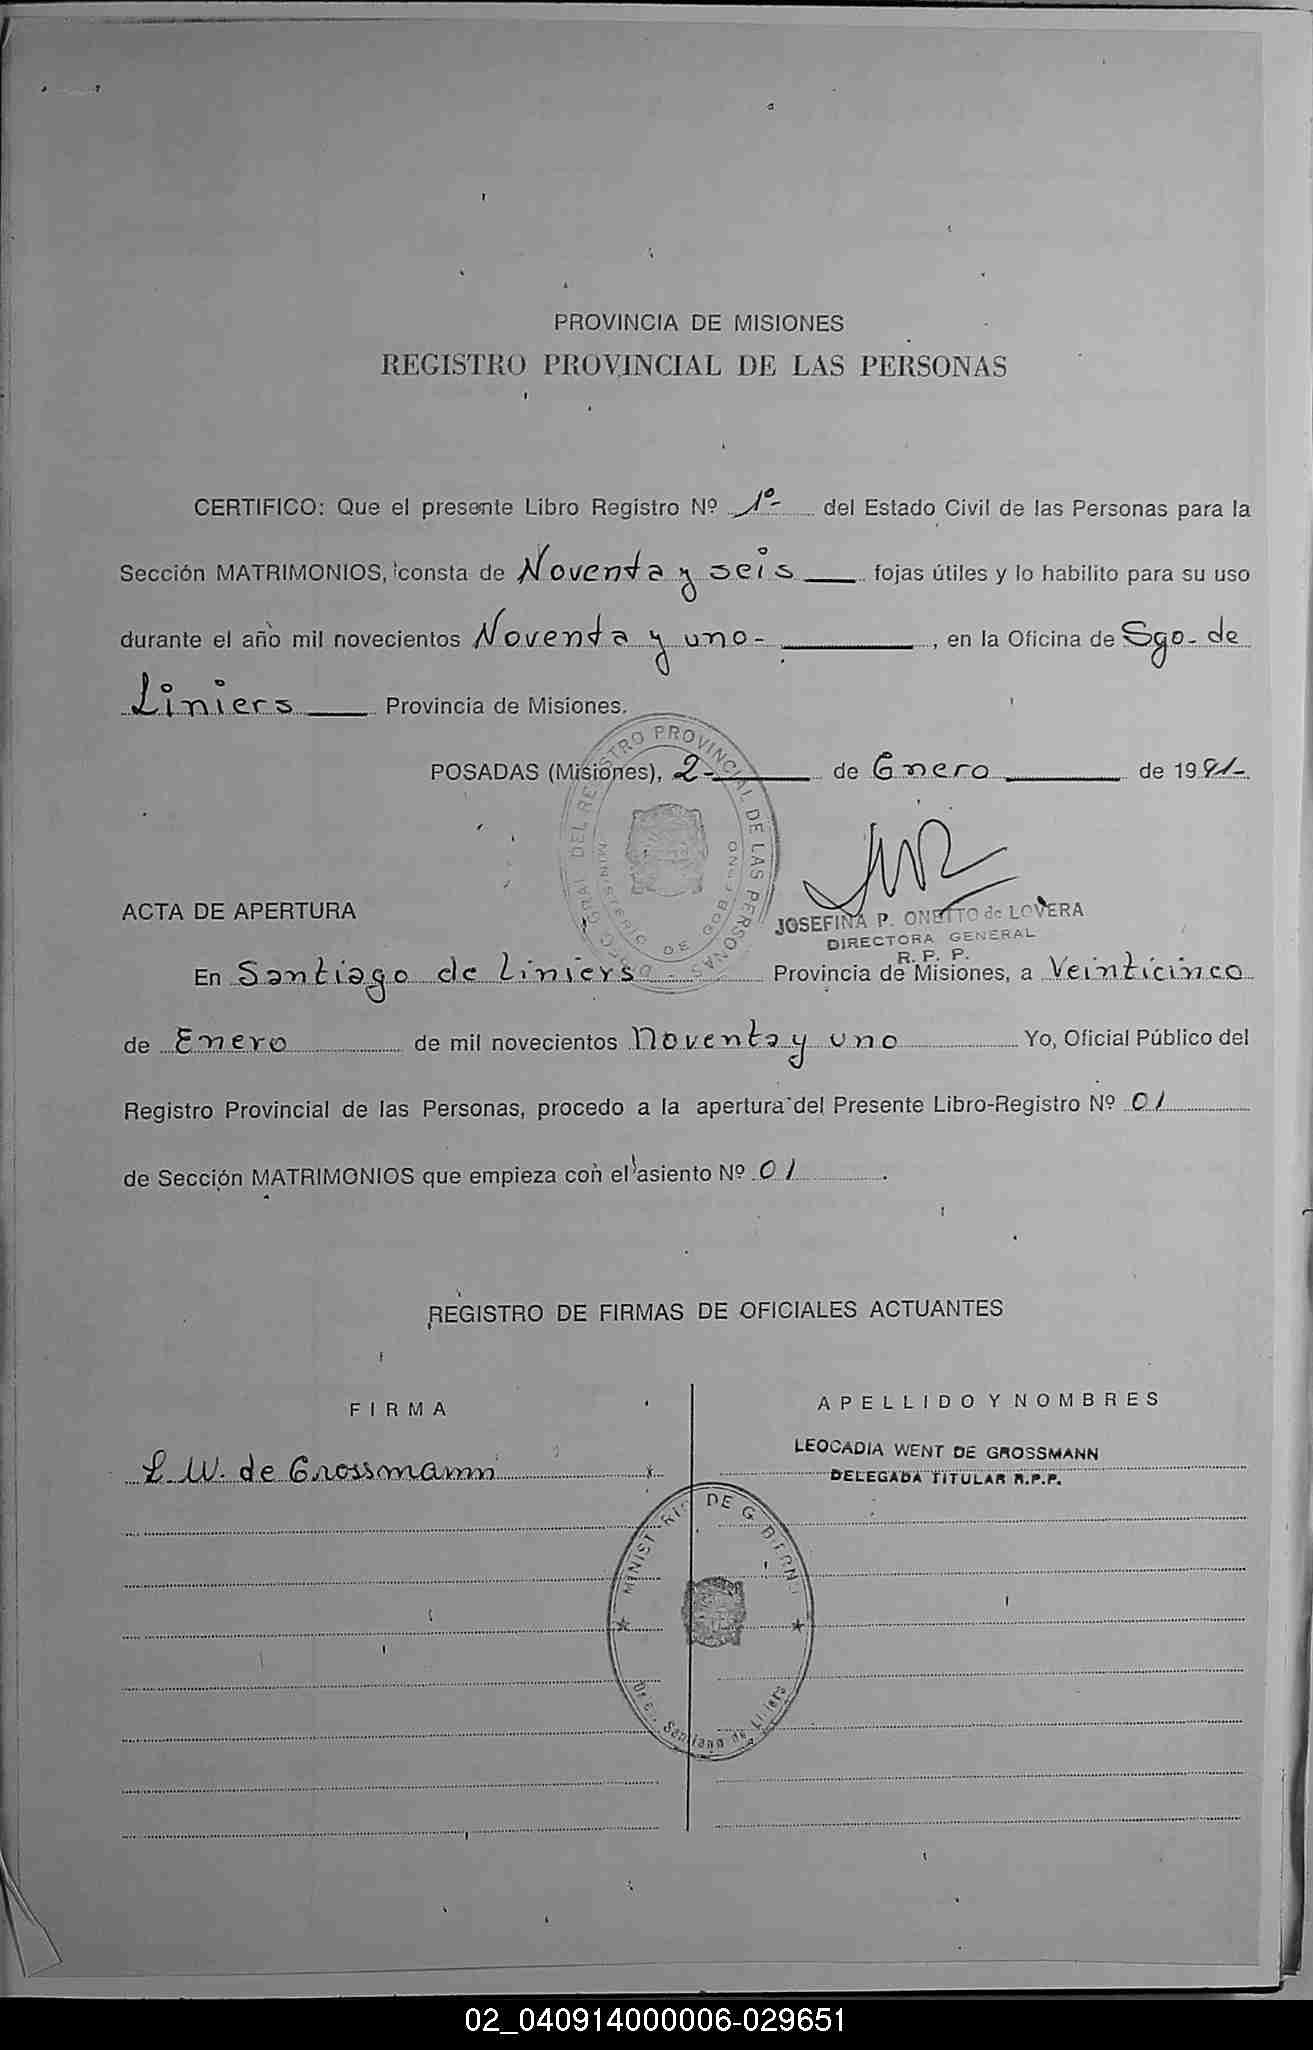 PROVINCIA DE MISIONES
REGISTRO PROVINCIAL DE LAS PERSONAS
CERTIFICO: Que el presente Libro Registro Nº 1º- del Estado Civil de las Personas para la
Sección MATRIMONIOS, consta de Noventa y seis fojas útiles y lo habilito para su uso
durante el año mil novecientos Noventa y uno- , en la Oficina de Sgo. de
Liniers Provincia de Misiones.
POSADAS (Misiones), 2- de Enero de 1991-
DIREC. GRAL. DEL REGISTRO PROVINCIAL DE LAS PERSONAS
MINISTERIO DE GOBIERNO
JOSEFINA P. ONETTO de LOVERA
DIRECTORA GENERAL
R. P. P.
ACTA DE APERTURA
En Santiago de Liniers Provincia de Misiones, a Veinticinco
de Enero de mil novecientos Noventa y uno Yo, Oficial Público del
Registro Provincial de las Personas, procedo a la apertura del Presente Libro-Registro Nº 01
de Sección MATRIMONIOS que empieza con el asiento Nº 01 .
REGISTRO DE FIRMAS DE OFICIALES ACTUANTES
FIRMA
APELLIDO Y NOMBRES
L W. de Grossmann
LEOCADIA WENT DE GROSSMANN
DELEGADA TITULAR R.P.P.
MINISTERIO DE GOBIERNO
Santiago de Liniers
02_040914000006-029651